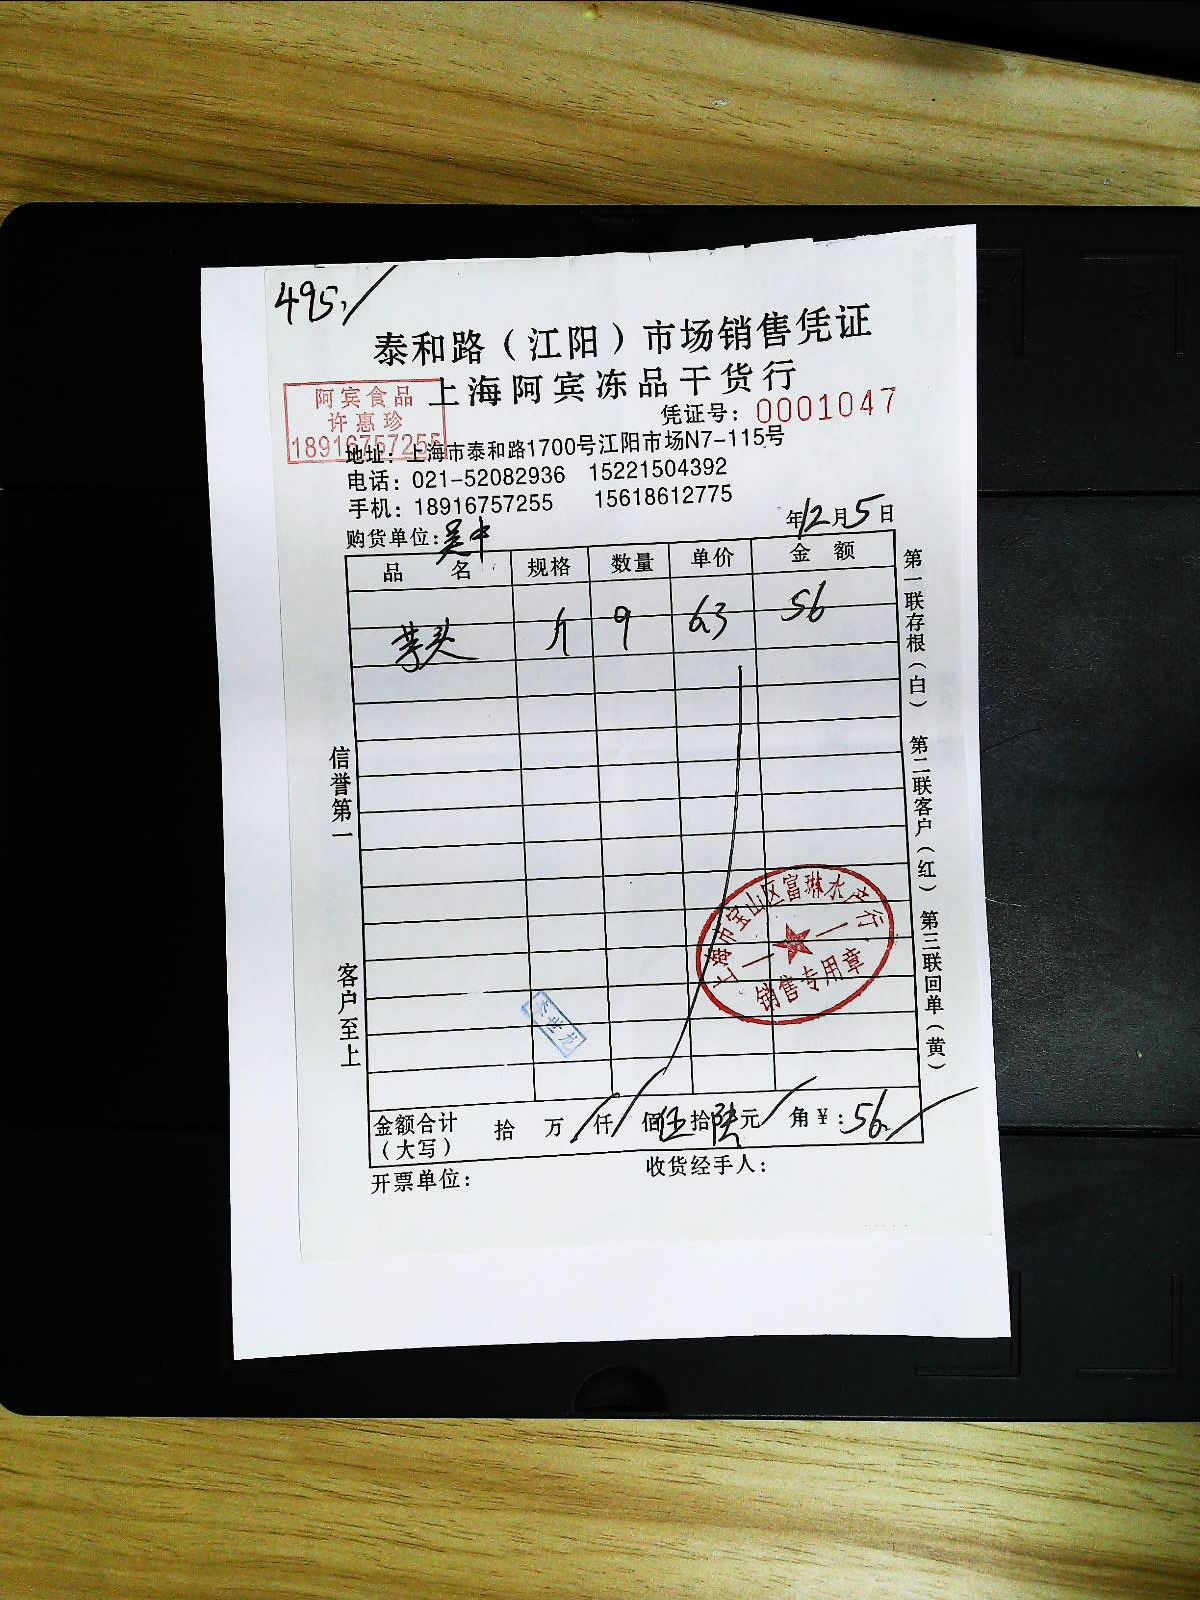 495,
泰和路（江阳）市场销售凭证
上海阿宾冻品干货行
阿宾食品
许惠珍
18916757255
凭证号：0001047
地址：上海市泰和路1700号江阳市场N7-115号
电话：021-52082936 15221504392
手机：18916757255 15618612775
购货单位：吴中 年12月5日
品 名 规格 数量 单价 金 额
芋头 斤 9 6.3 56
信誉第一
客户至上
第一联存根（白）
第二联客户（红）
第三联回单（黄）
上海市宝山区富琳水产行
销售专用章
金额合计（大写） 拾 万 仟 佰伍拾陆元 角￥:56.
开票单位： 收货经手人：